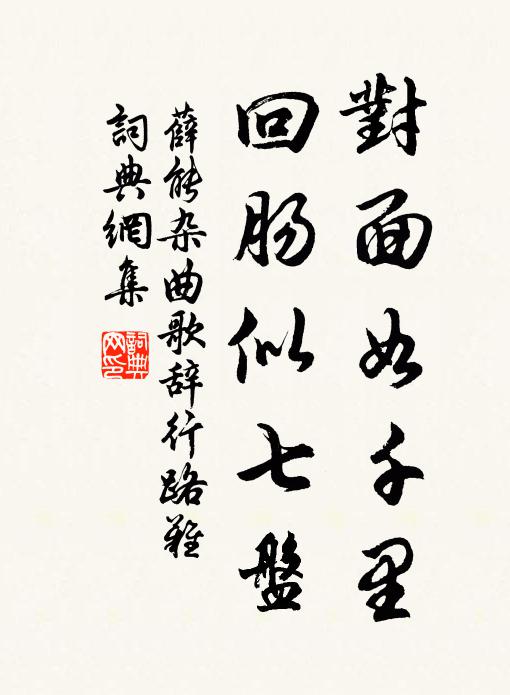 對面如千里
回肠似七盤
薛能杂曲歌辞行路難
詞典網集
詞典網印